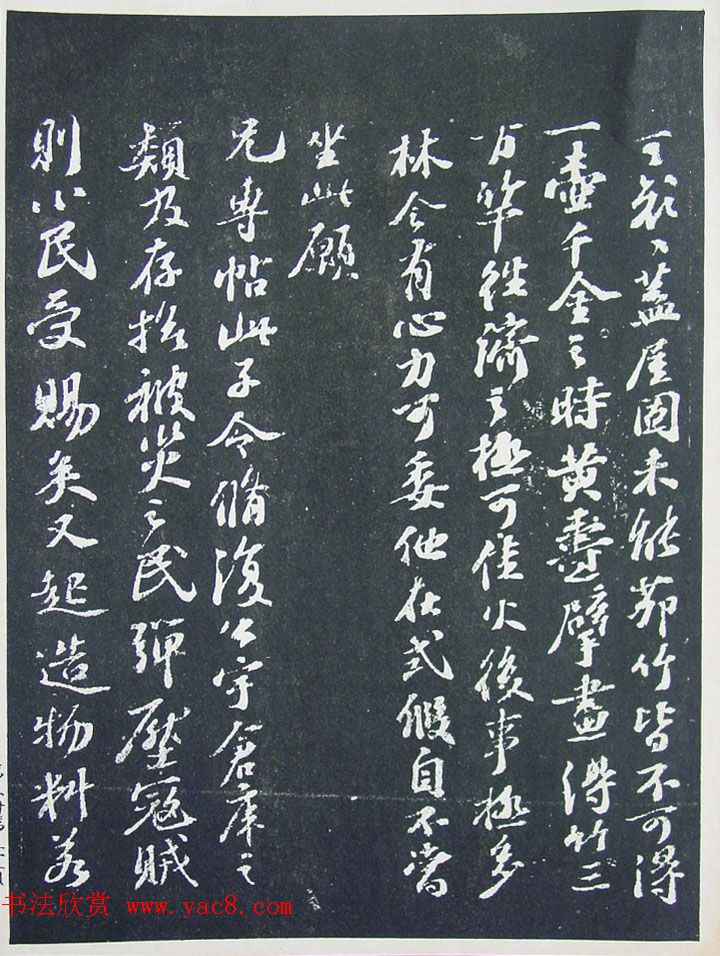 蓋屋固未能茆竹皆不可得
一壺千金之時黃燾擘畫得竹三
万竿往濟之極可佳火後事極多
林令有心力可委他在式假自不當
坐此願
兄專帖此子令脩復公宇倉庫之
類及存撫被災之民彈壓寇賊
則小民受賜矣又起造物料若
书法欣赏 www.yac8.com